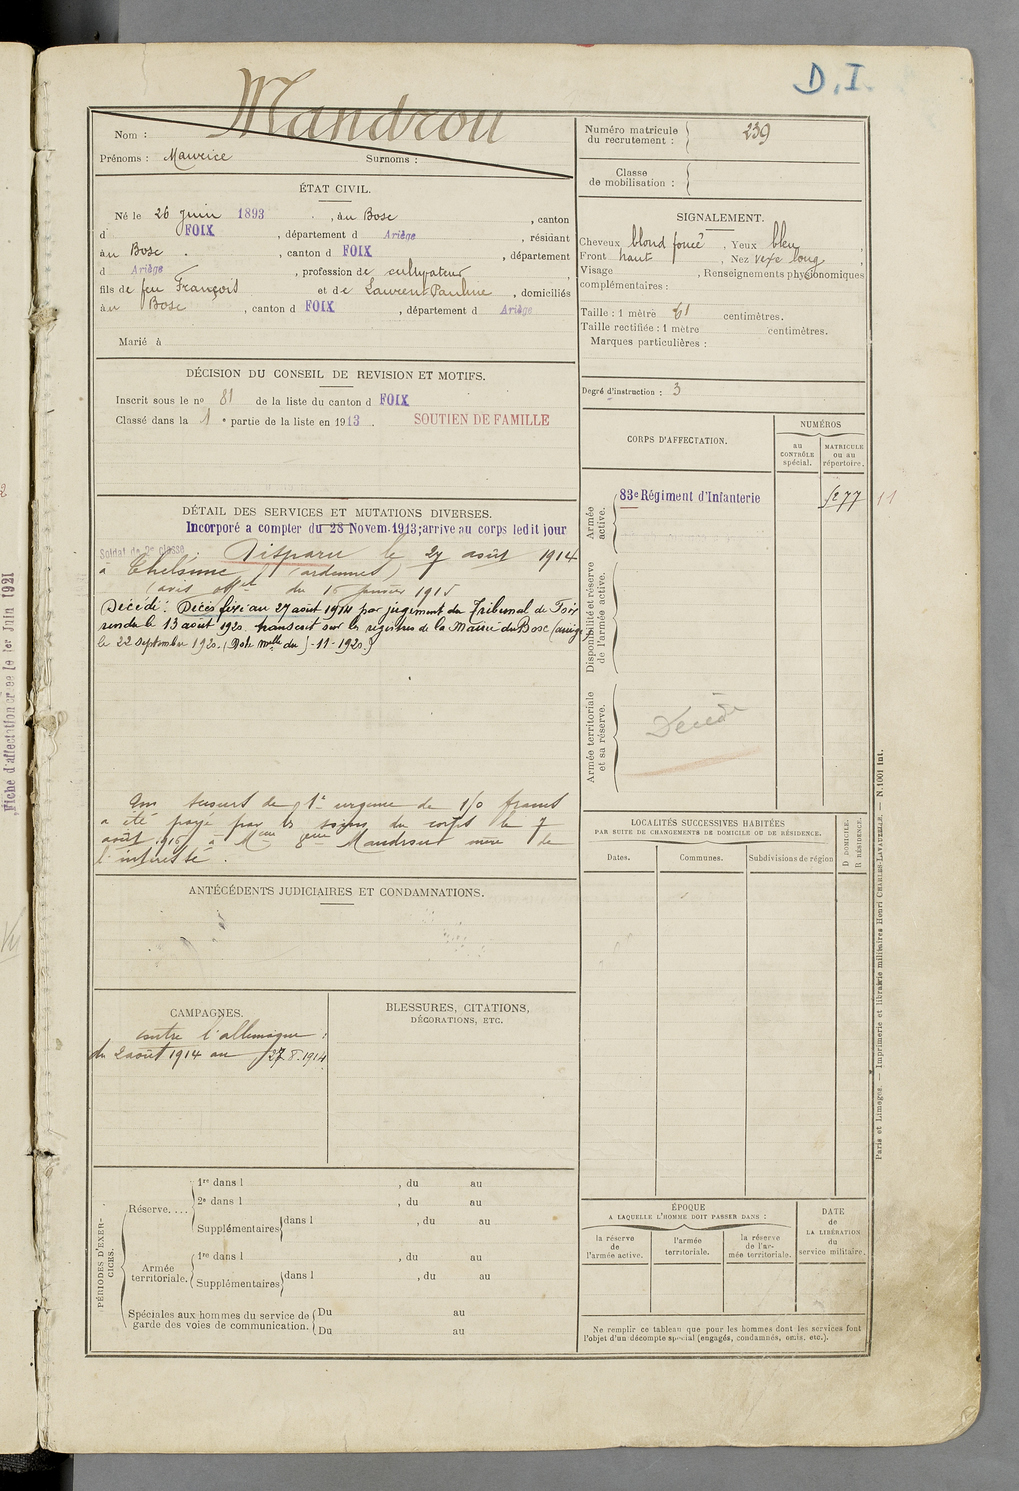 D.I.
Mandrou
Nom :
Prénoms : Maurice Surnoms :
Numéro matricule
du recrutement : 239
Classe
de mobilisation :
ÉTAT CIVIL.
Né le 26 juin 1893, au Bosc, canton
d FOIX, département d Ariège, résidant
au Bosc, canton d FOIX, département
d Ariège, profession de cultivateur,
fils de feu François et de Laurens Pauline, domiciliés
au Bosc, canton d FOIX, département d Ariège
Marié à
SIGNALEMENT.
Cheveux blond foncé, Yeux bleu,
Front haut, Nez vexe long,
Visage, Renseignements physionomiques
complémentaires :
Taille : 1 mètre 61 centimètres.
Taille rectifiée : 1 mètre centimètres.
Marques particulières :
DÉCISION DU CONSEIL DE REVISION ET MOTIFS.
Inscrit sous le no 81 de la liste du canton d FOIX
Classé dans la 1e partie de la liste en 1913.
SOUTIEN DE FAMILLE
Degré d'instruction : 3
CORPS D'AFFECTATION.
NUMÉROS
au
CONTRÔLE
spécial.
MATRICULE
ou au
répertoire.
Armée
active.
83e Régiment d'Infanterie
Disponibilité et réserve
de l'armée active.
Armée territoriale
et sa réserve.
Décédé
DÉTAIL DES SERVICES ET MUTATIONS DIVERSES.
Incorporé a compter du 28 Novem. 1913; arrive au corps ledit jour
Soldat de 2e classe. Disparu le 27 août 1914
à (ardennes)
(avis offel du 16 janvier 1915
Décédé. Décès fixé au 27 août 1914 par jugement du Tribunal de Foix
rendu le 13 août 1920. transcrit sur les registres de la Mairie du Bosc (ariège)
le 22 Septembre 1920. (Note mlle du -11-1920)
Un secours de 1e urgence de 150 francs
a été payé par les soins du corps le 7
août 1916 à Mandrou mère de
l'intéressé.
ANTÉCÉDENTS JUDICIAIRES ET CONDAMNATIONS.
LOCALITÉS SUCCESSIVES HABITÉES
PAR SUITE DE CHANGEMENTS DE DOMICILE OU DE RÉSIDENCE.
D DOMICILE.
R RÉSIDENCE.
Dates.
Communes.
Subdivisions de région
CAMPAGNES.
contre l'allemagne :
du 2 août 1914 au 27.8.1914
BLESSURES, CITATIONS,
DÉCORATIONS, ETC.
PÉRIODES D'EXER-
CICES.
Réserve....
1re dans l, du au
2e dans l, du au
Supplémentaires dans l, du au
Armée
territoriale.
1re dans l, du au
Supplémentaires dans l, du au
Spéciales aux hommes du service de
garde des voies de communication.
Du au
Du au
ÉPOQUE
A LAQUELLE L'HOMME DOIT PASSER DANS :
la réserve
de
l'armée active.
l'armée
territoriale.
la réserve
de l'ar-
mée territoriale.
DATE
de
LA LIBÉRATION
du
service militaire.
Ne remplir ce tableau que pour les hommes dont les services font
l'objet d'un décompte spécial (engagés, condamnés, omis, etc.).
Paris et Limoges. — Imprimerie et librairie militaires Henri CHARLES-LAVAUZELLE. — N. 1001 int.
Fiche d'affectation créée le 1er Juin 1921